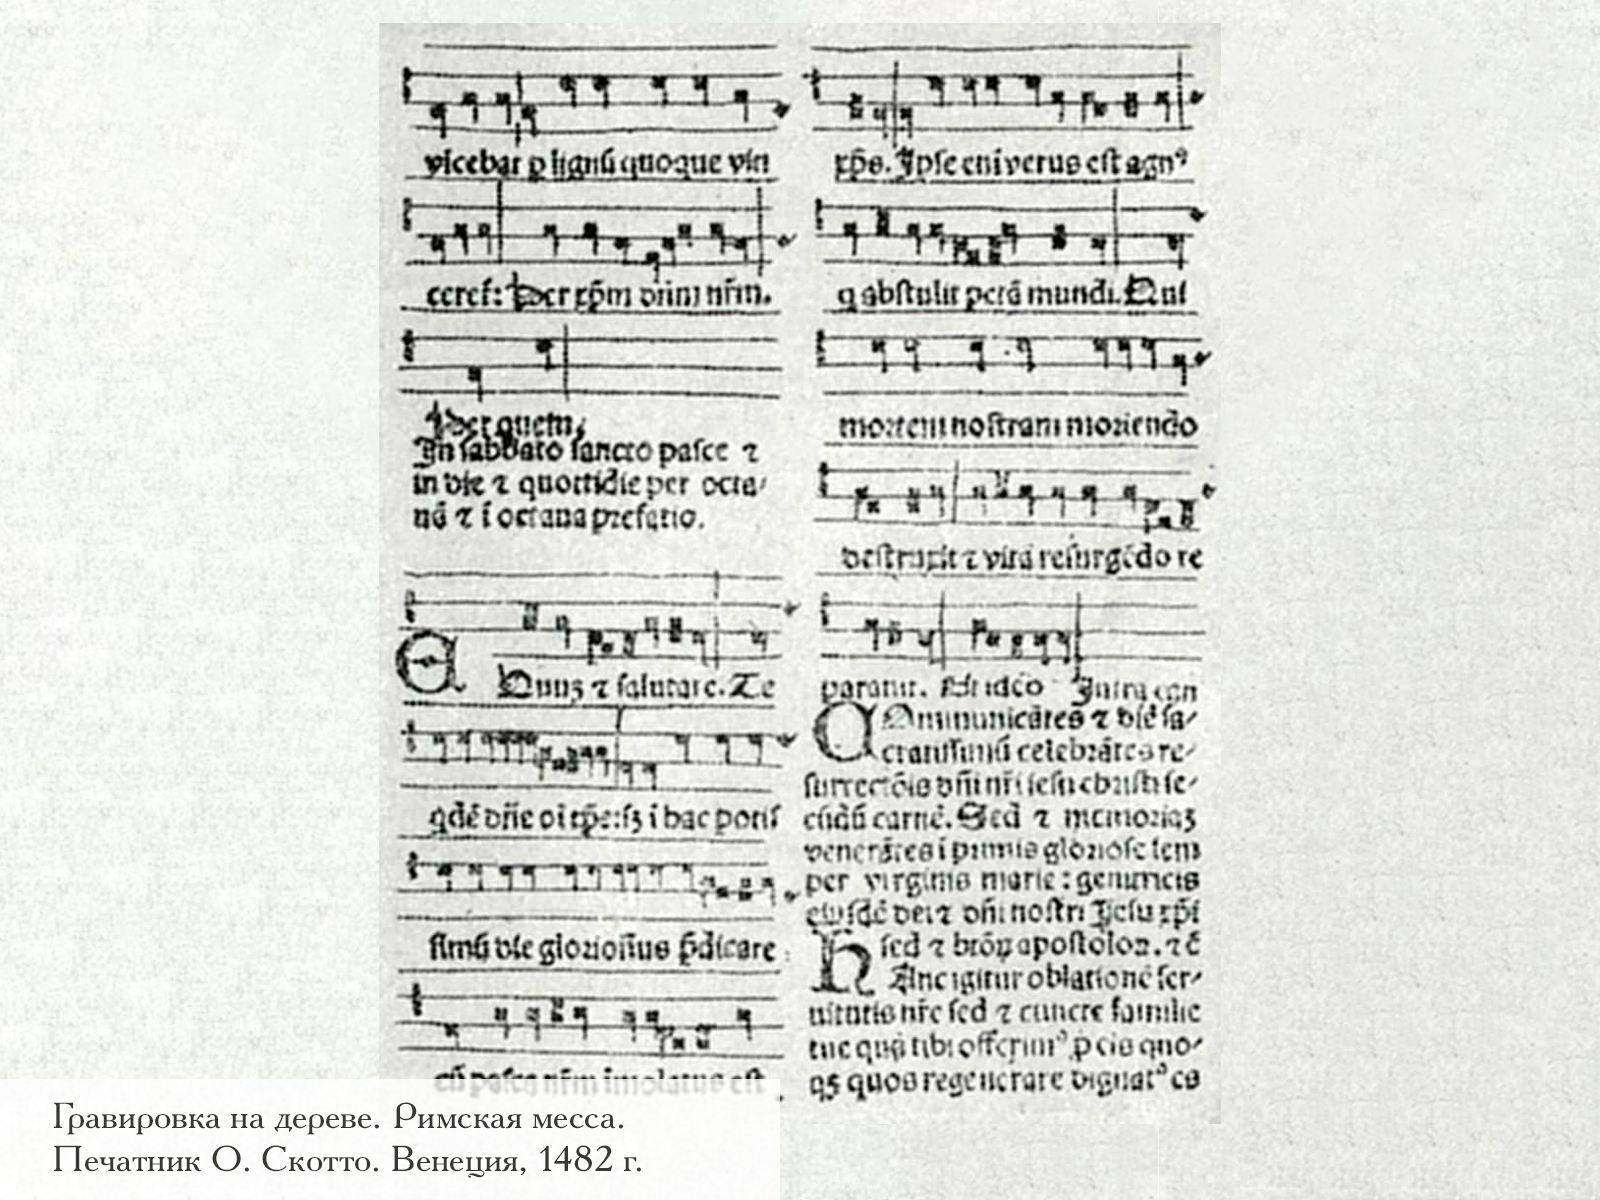 vicebat p lignū quoque vin
ceret: Per xp̄m dn̄m nr̄m.
Per quem,
In sabbato sancto pasce ⁊
in die ⁊ quottidie per octa/
nā ⁊ ī octaua prefatio.
EQuuʒ ⁊ salutare. Te
qdē dn̄e oī tp̄e: sʒ ī hac potis
simū die gloriosius p̄dicare
cū pasca nr̄m imolatus est
xp̄s. Ipse eni verus est agnꝰ
q abstulit pctā mundi. Qui
mortem nostram moriendo
destruxit ⁊ vitā resurgēdo re
parauit. Et ideo Infra can
COmmunicātes ⁊ diē sa/
cratissimū celebrātes re/
surrectōis dn̄i nr̄i iesu christi se/
cūdū carnē. Sed ⁊ memoriaʒ
venerātes ī primis gloriose sem
per virginis marie: genitricis
eiusdē dei ⁊ dn̄i nostri Iesu xp̄i
sed ⁊ btōꝝ apostoloꝝ. ⁊ē
HAnc igitur oblationē ser/
uitutis nr̄e sed ⁊ cuncte familie
tue quā tibi offerimꝰ p eis quo/
qʒ quos regenerare dignatꝰ es
Гравировка на дереве. Римская месса.
Печатник О. Скотто. Венеция, 1482 г.